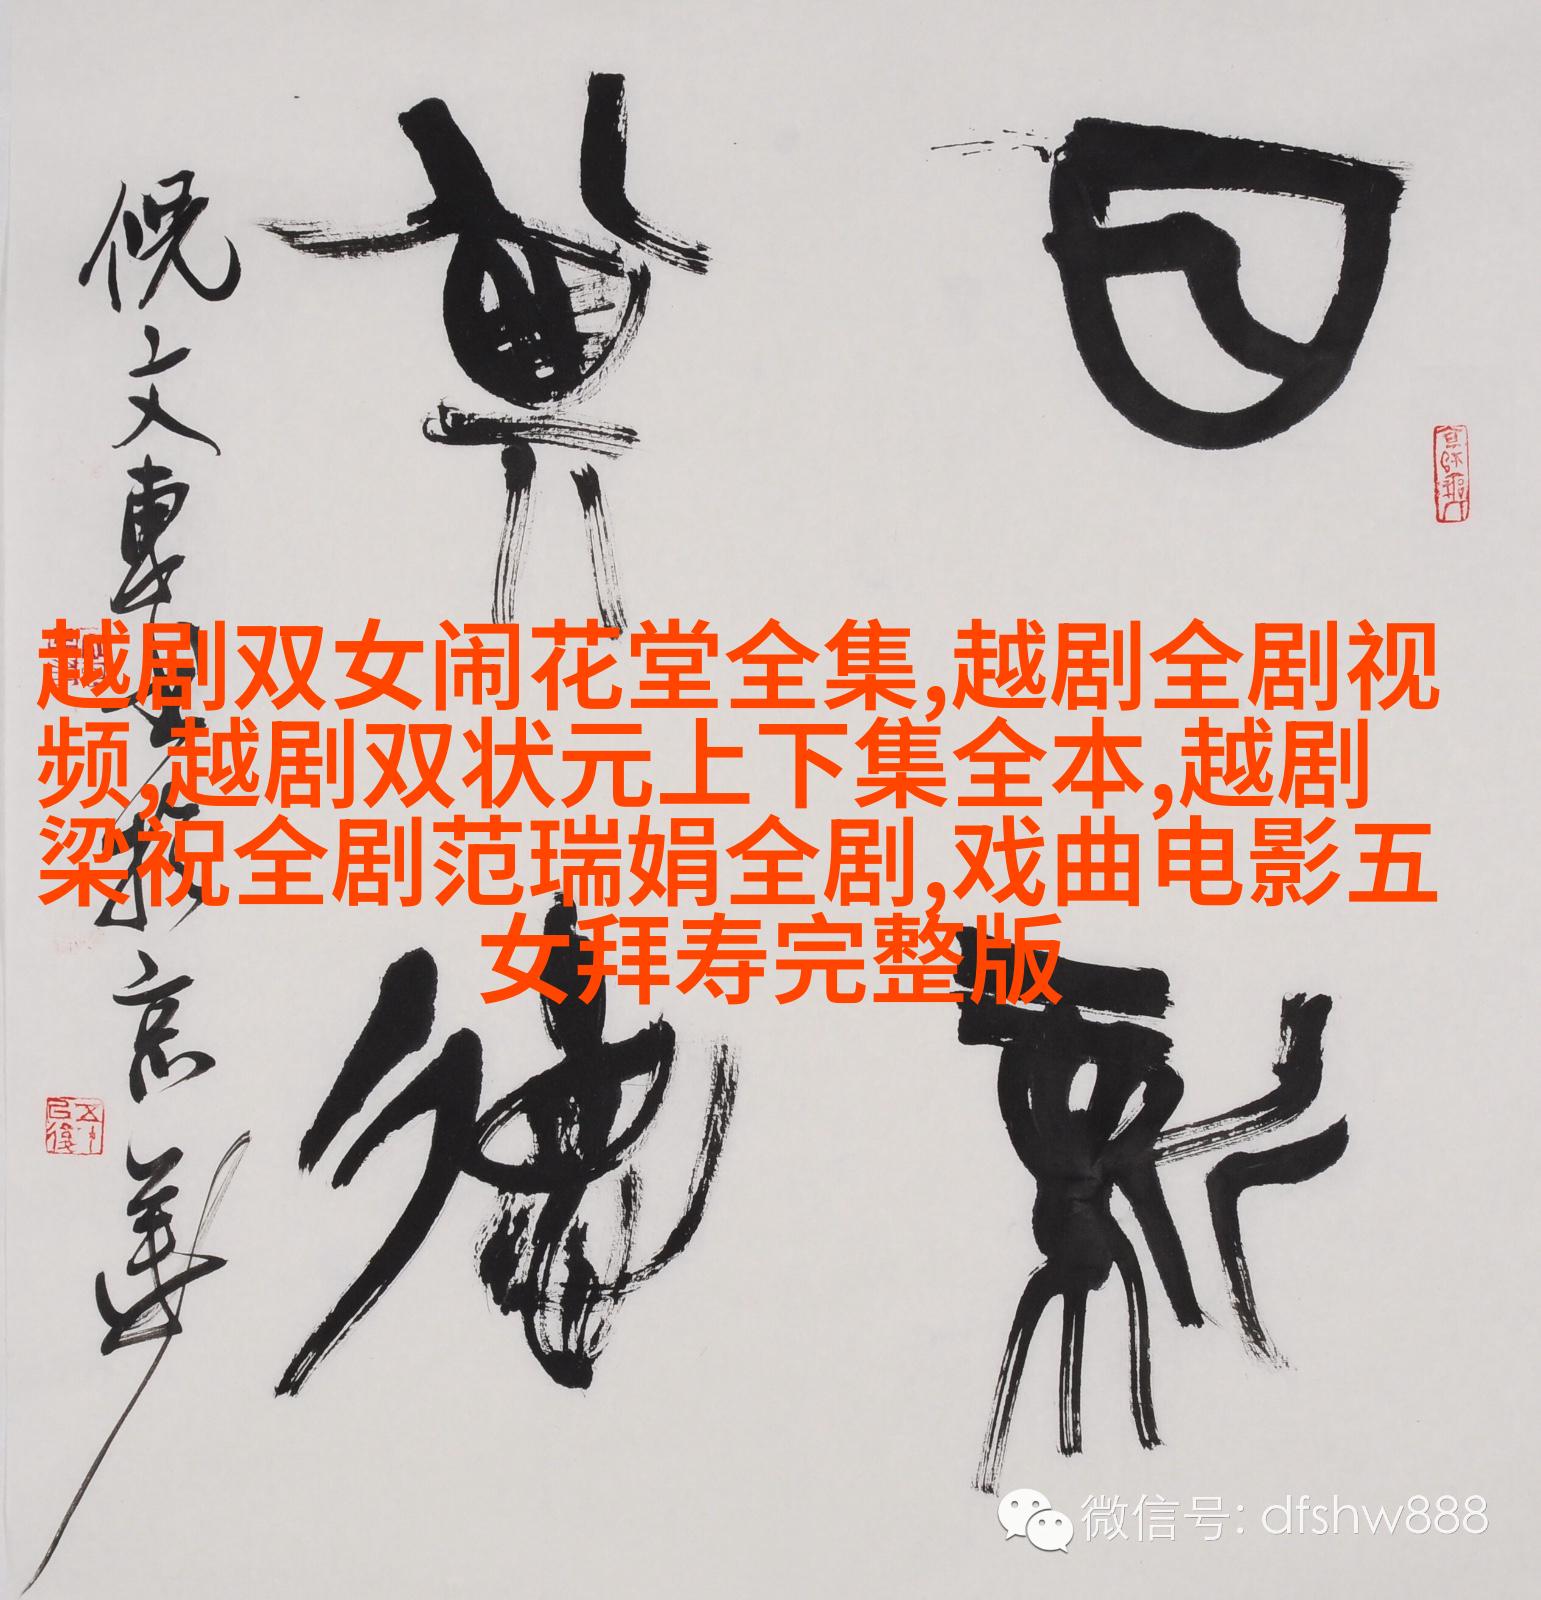 越剧双女闹花堂全集,越剧全剧视
频,越剧双状元上下集全本,越剧
梁祝全剧范瑞娟全剧,戏曲电影五
女拜寿完整版
日
新
其
德
倪文東
京華
微信号: dfshw888